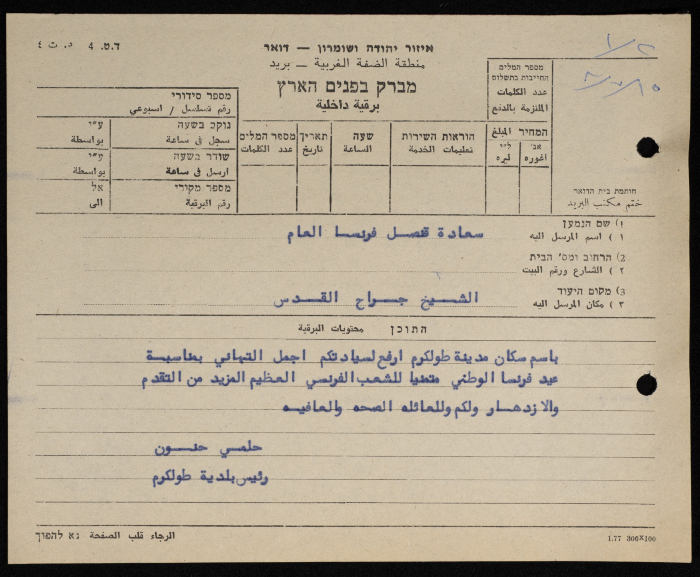 ד.ט. 4 د. ت ٤
איזור יהודה ושומרון – דואר
منطقة الضفة الغربية – بريد
מברק בפנים הארץ
برقية داخلية
מספר המלים
החייבות בתשלום
عدد الكلمات
الملتزمة بالدفع
המחיר المبلغ
אג' ל"י
اغوره ليره
חותמת בית הדואר
ختم مكتب البريد
הוראות השירות
تعليمات الخدمة
שעה
الساعة
תאריך
تاريخ
מספר המלים
عدد الكلمات
מספר סידורי
رقم تسلسل / اسبوعي
נוקב בשעה ע"י
سجل في ساعة بواسطة
שודר בשעה ע"י
ارسل في ساعة بواسطة
מספר מקורי אל
رقم البرقية الى
1) שם הנמען
١ ) اسم المرسل اليه
سعادة قنصل فرنسا العام
2) הרחוב ומס' הבית
٢ ) الشارع ورقم البيت
3) מקום היעוד
٣ ) مكان المرسل اليه
الشيخ جراح القدس
התוכן محتويات البرقية
باسم سكان مدينة طولكرم ارفع لسيادتكم اجمل التهاني بمناسبة
عيد فرنسا الوطني متمنيا للشعب الفرنسي العظيم المزيد من التقدم
والازدهار ولكم وللعائله الصحه والعافيه
حلمي حنون
رئيس بلدية طولكرم
الرجاء قلب الصفحة נא להפוך
1.77 300X100